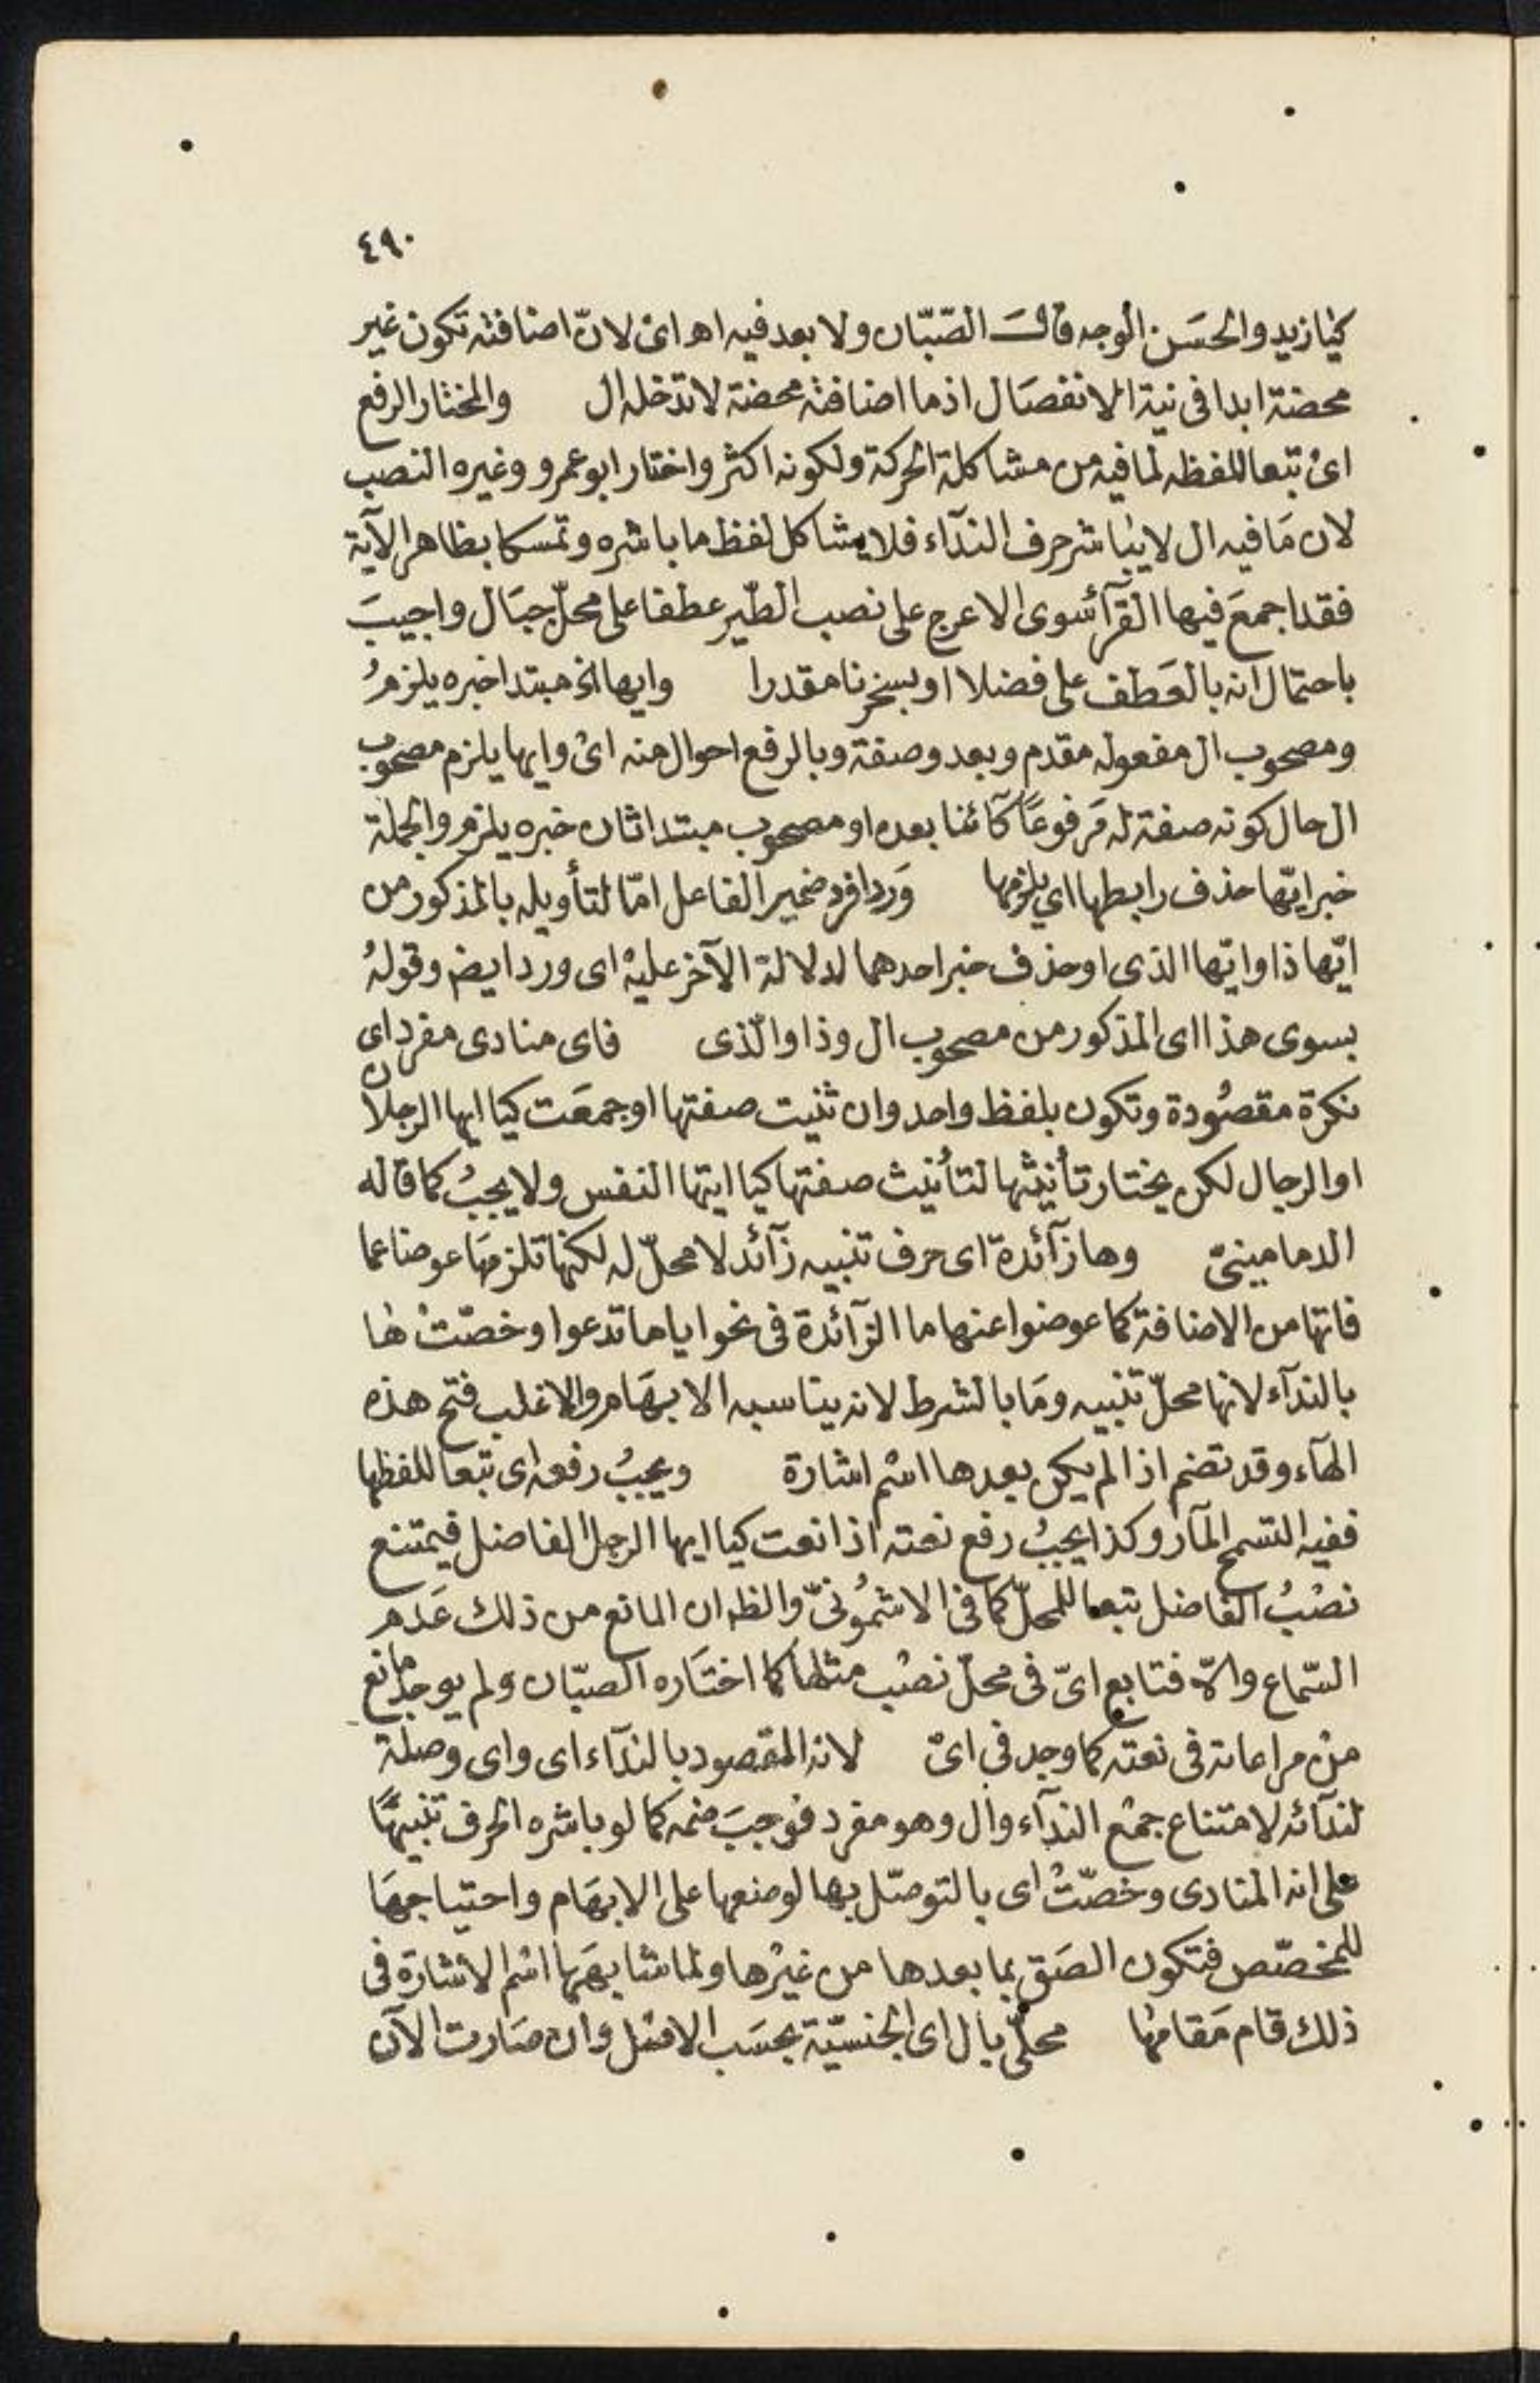 ٤٩٠
كيا زيد والحسَن الوجه قالَ الصّبّان ولا بعد فيه اهـ اى لانّ اضافته تكون غير
محضة ابدا فى نية الانفصَال اذ ما اضافته محضة لا تدخله ال والمختار الرفع
اى تبعا للفظه لما فيه من مشاكلة الحركة ولكونه اكثر واختار ابو عمرو وغيره النصب
لان مَا فيه ال لا يباشر حرف الندآء فلا يشاكل لفظ ما باشره وتمسكا بظاهر الآية
فقد اجمعَ فيها القرآء سوى الاعرج على نصب الطّير عطفا على محلّ جبَال واجيبَ
باحتمال انه بالعَطف على فضلا او بسخرنا مقدرا وايها الخ مبتدا خبره يلزمُ
ومصحوب ال مفعوله مقدم وبعد وصفة وبالرفع احوال منه اى وايها يلزم مصحوب
ال حال كونه صفة له مَرفوعًا كآئنا بعده او مصحوب مبتدا ثان خبره يلزم والجملة
خبر ايّها حذف رابطها اي يلزمها وَرد افرد ضمير الفاعل امّا لتأويله بالمذكور من
ايّها ذا وايّها الذى او حذف خبر احدهما لدلالة الآخر عليهْ اى ورد ايضا وقولهُ
بسوى هذا اى المذكور من مصحوب ال وذا والّذى فاى منادى مفرد اى
نكرة مقصُودة وتكون بلفظ واحد وان ثنيت صفتها او جمعَت كيا ايها الرجلان
او الرجال لكن يختار تأنيثها لتأنيث صفتها كيا ايتها النفس ولا يجبُ كما قاله
الدمامينىّ وها زآئدة اى حرف تنبيه زآئد لا محلّ له لكنها تلزمهَا عوضا عما
فاتها من الاضافة كما عوضوا عنها ما الزآئدة فى نحو ايا ما تدعوا وخصّتْ هٰا
بالندآء لانها محلّ تنبيه ومَا بالشرط لانه يناسبه الابهَام والاغلب فتح هذه
الهآء وقد تضم اذا لم يكن بعدها اسْم اشارة ويجبُ رفعه اى تبعا للفظها
ففيه التسمح المآر وكذا يجبُ رفع نعته اذا نعت كيا ايها الرجل الفاضل فيمتنع
نصْبُ الفاضل تبعا للمحلّ كما فى الاشمُونىّ والظ ان المانع من ذلك عَدم
السّماع والاّ فتابع اىّ فى محلّ نصْب مثلها كما اختَاره الصبّان ولم يوجد مانع
منْ مراعاته فى نعته كما وجد فى اىّ لانه المقصود بالندآء اى واى وصلة
لندآئه لامتناع جمْع الندآء وال وهو مفرد فوجبَ ضمه كما لو باشره الحرف تنبيهًا
على انه المنادى وخصّتْ اى بالتوصّل بها لوضعها على الابهَام واحتياجهَا
للمخصّص فتكون الصَق بما بعدها من غيْرها ولما شابهَها اسْم الاشارة فى
ذلك قام مَقامهٰا محلّى بال اى الجنسيّة بحسَب الاصْل وان صَارت الآن